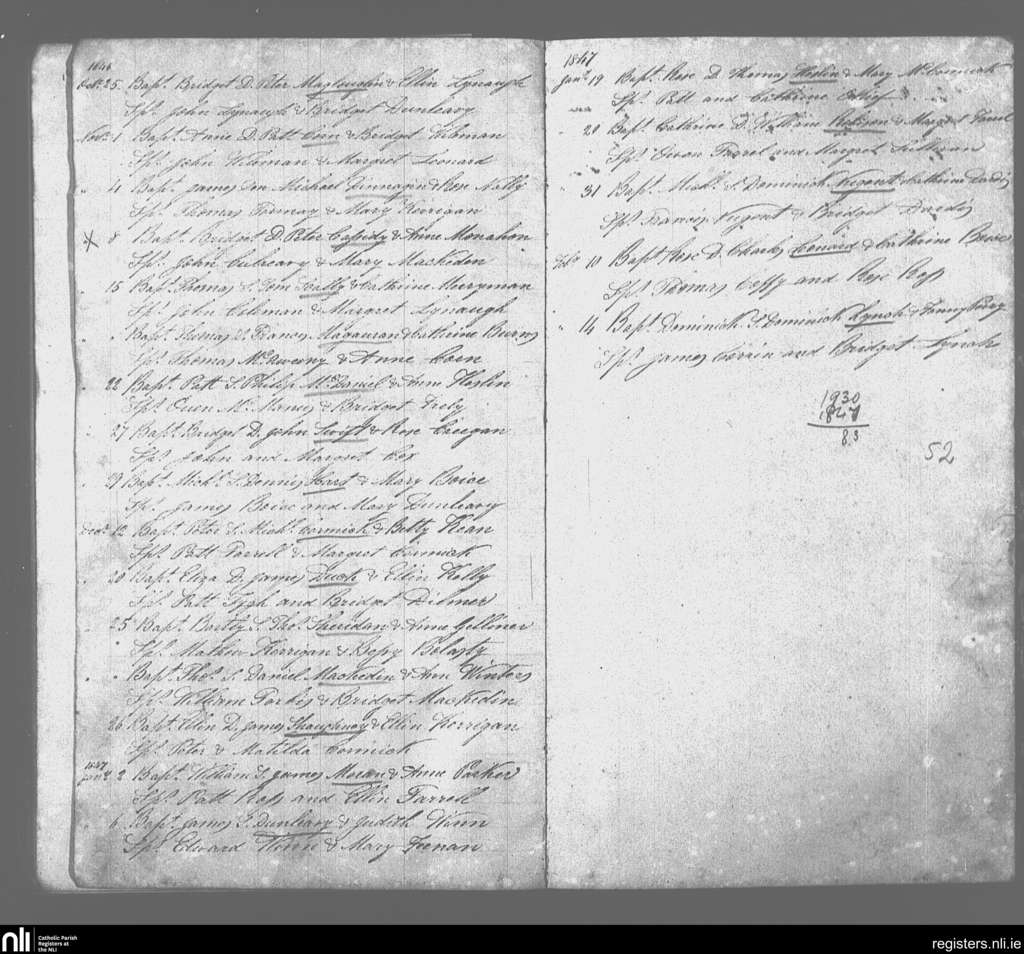 1846
Octr. 25 Bapt. Bridget D. Peter & Ellin Lynaugh
Sps. John Lynaugh & Bridget Dunleavy
Novr. 1 Bapt. Anne D. Patt & Bridget
Sps. John & Margret Leonard
" 4 Bapt. James Son Michael Finnagin & Rose Nally
Sps. Thomas & Mary Kerrigan
X 8 Bapt. Bridget D. Peter Cassidy & Anne Monahon
Sps. John Culreavy & Mary Mackeden
" 15 Bapt. Thomas S. Tom & Cathrine Merryman
Sps. John Coleman & Margret Lynaugh
" " Bapt. Thomas S. Francis Magauran & Cathrine Burns
Sps. Thomas & Anne Coen
" 22 Bapt. Patt S. Philip McDaniel & Anne Heslin
Sps. Owen McManus & Bridget
" 27 Bapt. Bridget D. John Swift & Rose Creegan
Sps. John and Margret Cox
" 29 Bapt. Michl. S. Dennis Hart & Mary Boice
Sps. James Boice and Mary Dunleavy
Decr. 12 Bapt. Peter S. Michl. Cormick & Betty Kean
Sps. Patt Farrell & Margret Cormick
" 20 Bapt. Eliza D. James & Ellin Kelly
Sps. Patt and Bridget Dilmer
" 25 Bapt. Bartly S. Thos. Sheridan & Anne
" Sps. Mathew Kerrigan &
" " Bapt. Thos. S. Daniel Mackedin & Ann Winters
Sps. William & Bridget Mackedin
26 Bapt. Ellin D. James Shaughnesy & Ellin Kerrigan
Sps. Peter & Matilda Cormick
1847
Janr. 2 Bapt. William S. James Moran & Anne Parker
Sps. Patt Ross and Ellin Farrell
" 6 Bapt. James S. Dunleavy & Judith Winn
Sps. Edward Winn & Mary Feenan
1847
Janr. 19 Bapt. Rose D. Thomas Heslin & Mary McCormick
Sps. Patt and Cathrine
" 20 Bapt. Cathrine D. William & Margret
Sps. Owen Farrel and Margret Sulliwan
" 31 Bapt. Michl. S. Dominick Nugent & Cathrine Dardis
Sps. Francis Nugent & Bridget Dardis
Febr. 10 Bapt. Rose D. Charles Lenard & Cathrine Boice
Sps. Thomas Coffy and Rose Ross
" 14 Bapt. Dominick S. Dominick Lynch & Fanny
Sps. James and Bridget Lynch
1930
1847
83
52
nli Catholic Parish
Registers at
the NLI
registers.nli.ie